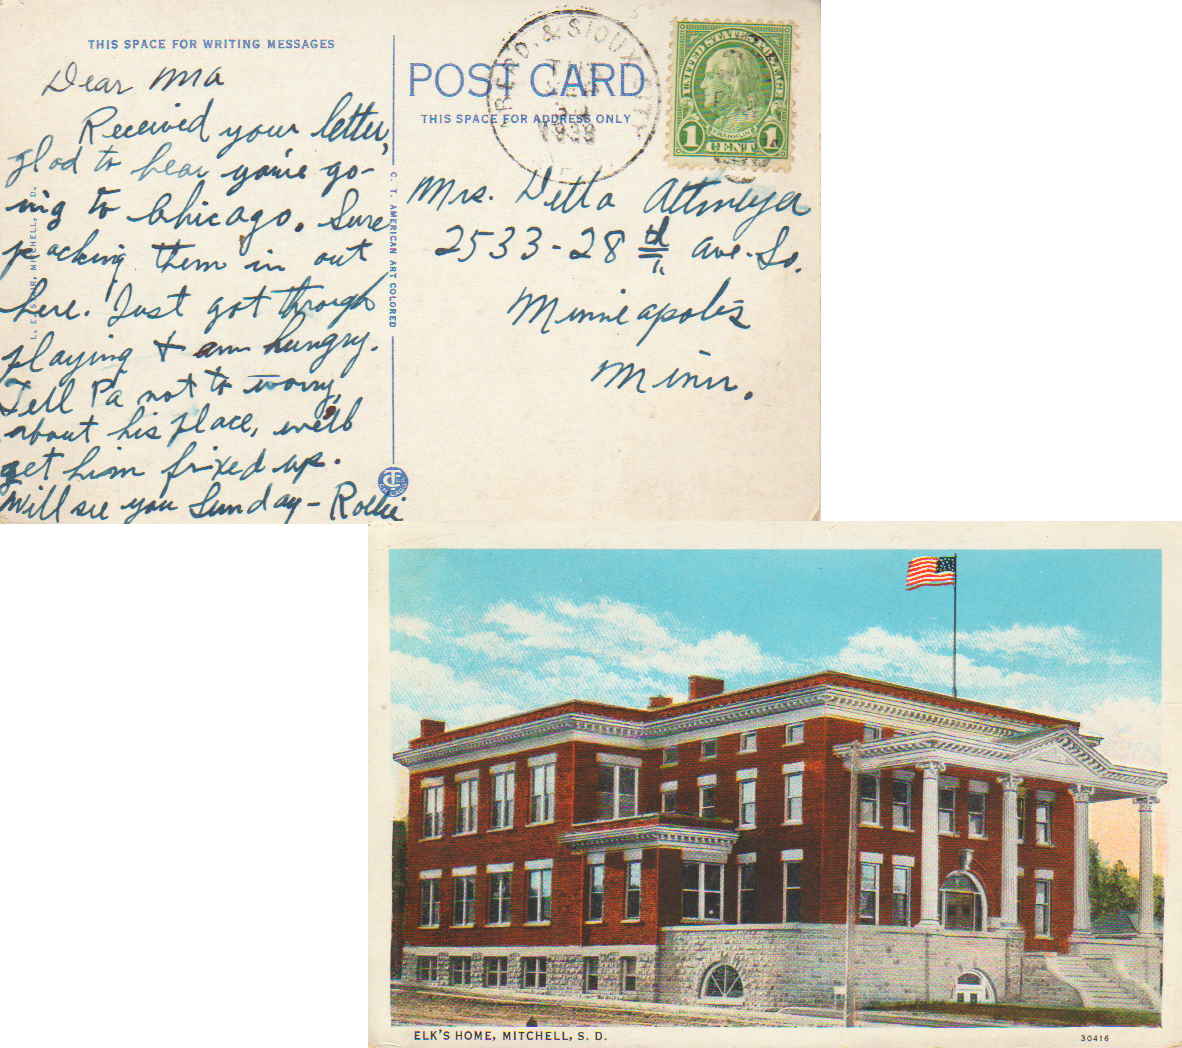 THIS SPACE FOR WRITING MESSAGES
Dear Ma
Received your letter,
glad to hear you're go-
ing to Chicago. Sure
packing them in out
here. Just got through
playing + am hungry.
Tell Pa not to worry,
about his place, we'll
get him fixed up.
Will see you Sunday - Rollie
L. E. MITCHELL, S. D.
C. T. AMERICAN ART COLORED
POST CARD
THIS SPACE FOR ADDRESS ONLY
& SIOUX CITY
R.P.O.
1938
UNITED STATES POSTAGE
FRANKLIN
1 CENT 1
Mrs. Detta Attmeyer
2533-28th ave. So.
Minneapolis
Minn.
ELK'S HOME, MITCHELL, S. D.
30416